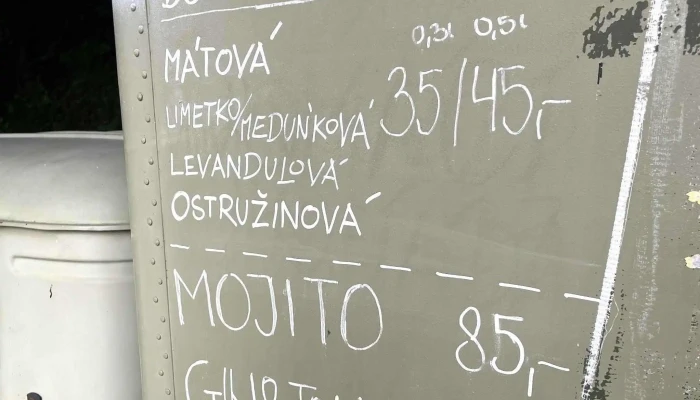 0,3l 0,5l
MÁTOVÁ
LIMETKO/MEDUŇKOVÁ 35/45,-
LEVANDULOVÁ
OSTRUŽINOVÁ
MOJITO 85,-